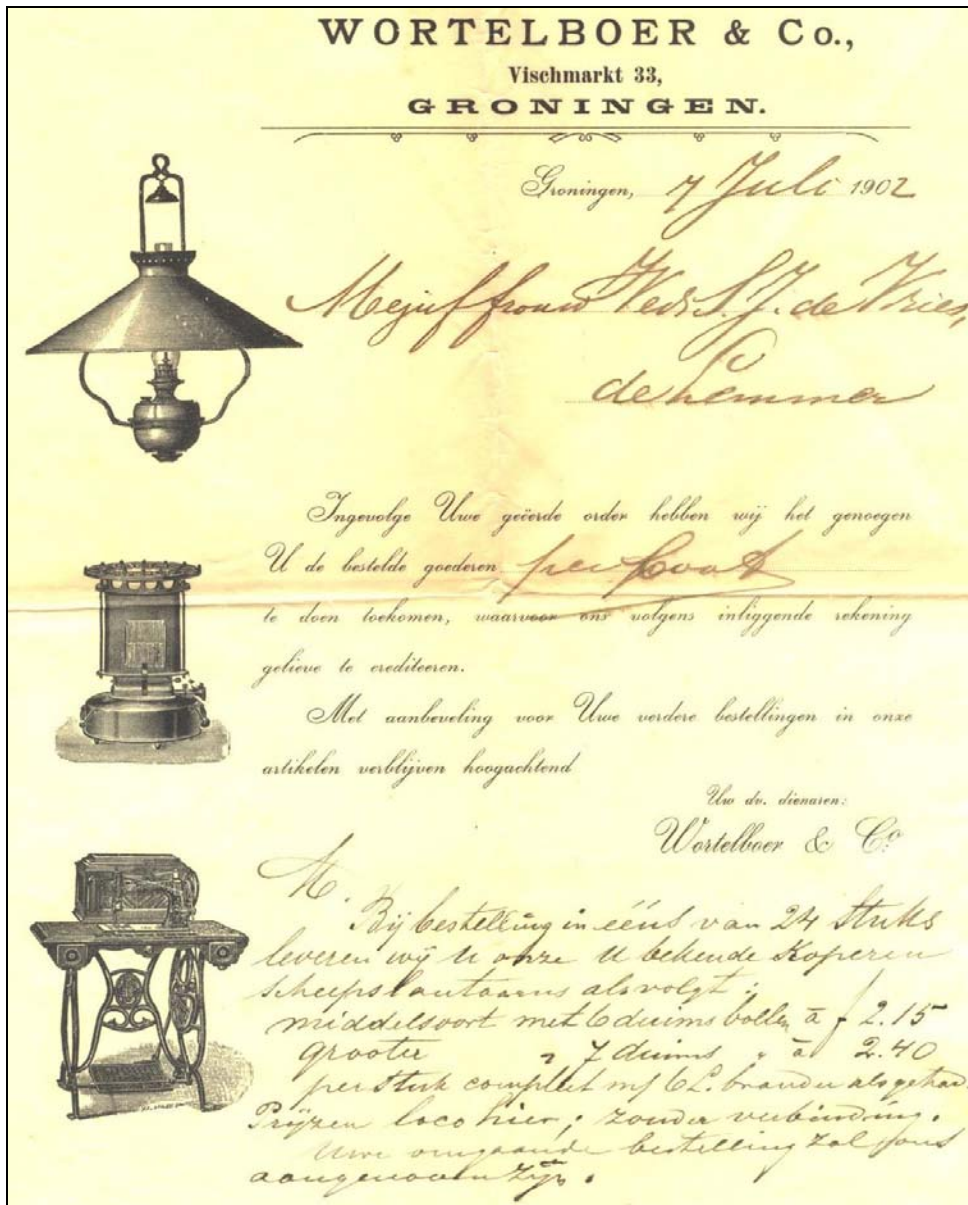 WORTELBOER & Co.,
Vischmarkt 33,
GRONINGEN.
Groningen, 7 Juli 1902
Mejuffrouw Wedr. S. J. de Vries,
de Lemmer
Ingevolge Uwe geëerde order hebben wij het genoegen
U de bestelde goederen per boot
te doen toekomen, waarvoor ons volgens inliggende rekening
gelieve te crediteeren.
Met aanbeveling voor Uwe verdere bestellingen in onze
artikelen verblijven hoogachtend
Uw dv. dienaren:
Wortelboer & Co.
M.
Bij bestelling in ééns van 24 stuks
leveren wij U onze U bekende Koperen
scheepslantaarns als volgt:
middelsoort met 6 duims bollen à f 2.15
grooter " 7 duims " à 2.40
per stuk compleet m/ 6 L. brander als gehad
Prijzen loco hier; zonder verbinding.
Uwe omgaande bestelling zal ons
aangenaam zijn.